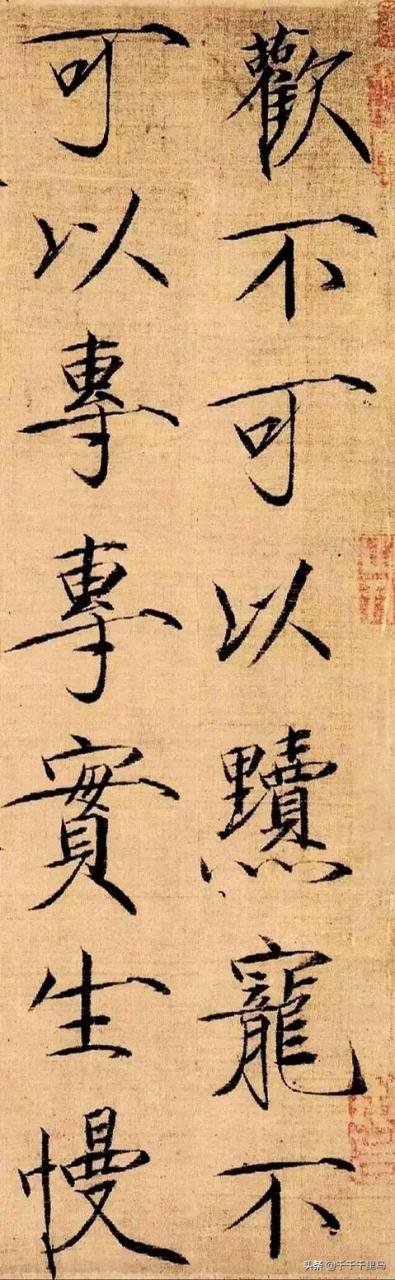 歡不可以黷寵不
可以專專實生慢
头条@千千千里马